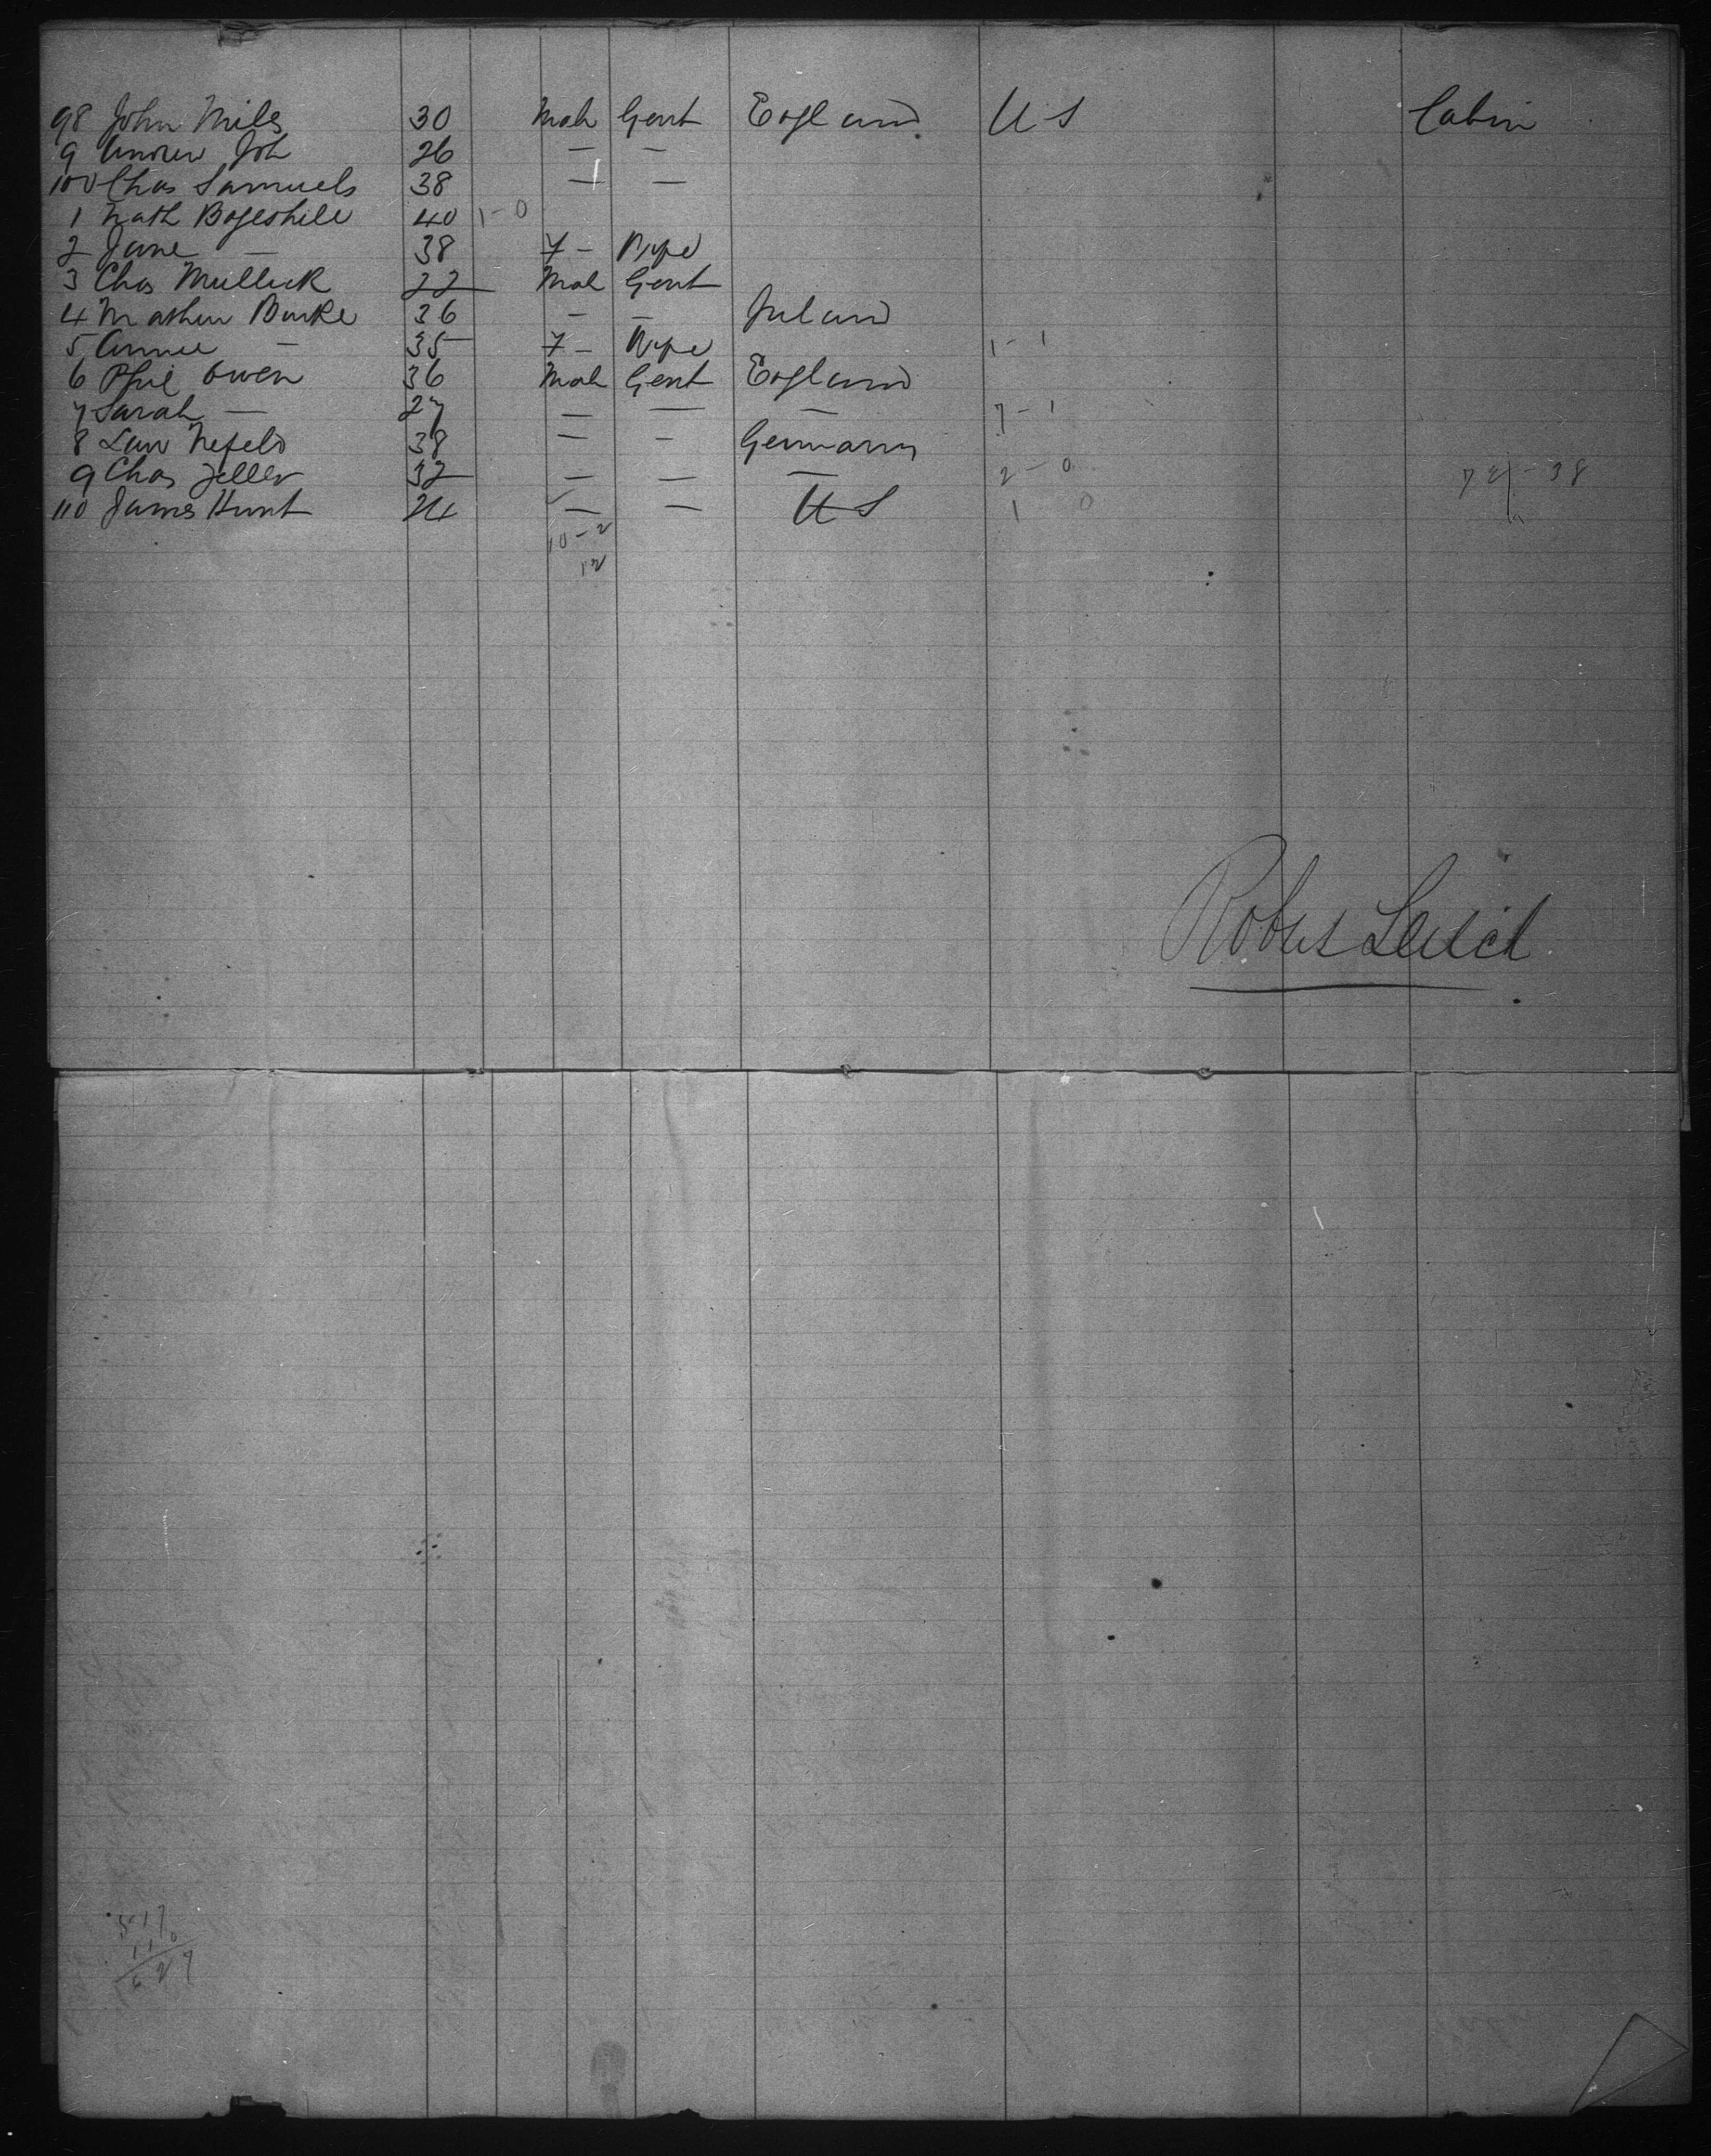 98 John Miles 30 Male Gent England U S Cabin
9 Andrew Joh 26 — —
100 Chas Samuels 38 — —
1 Nath Bogeshill 40 1-0
2 Jane — 38 F - Wife
3 Chas Mullick 22 Male Gent
4 Mathew Burke 36 - - Ireland
5 Annie — 35 F - Wife 1-1
6 Phil Owen 36 Male Gent England
7 Sarah — 27 — — — 7-1
8 Law Nefeld 38 — - Germany
9 Chas Zeller 32 — — — 2-0 72-38
110 James Hunt 24 — — U S 1 0
10-2
12
Robert Leitch
517
110
627